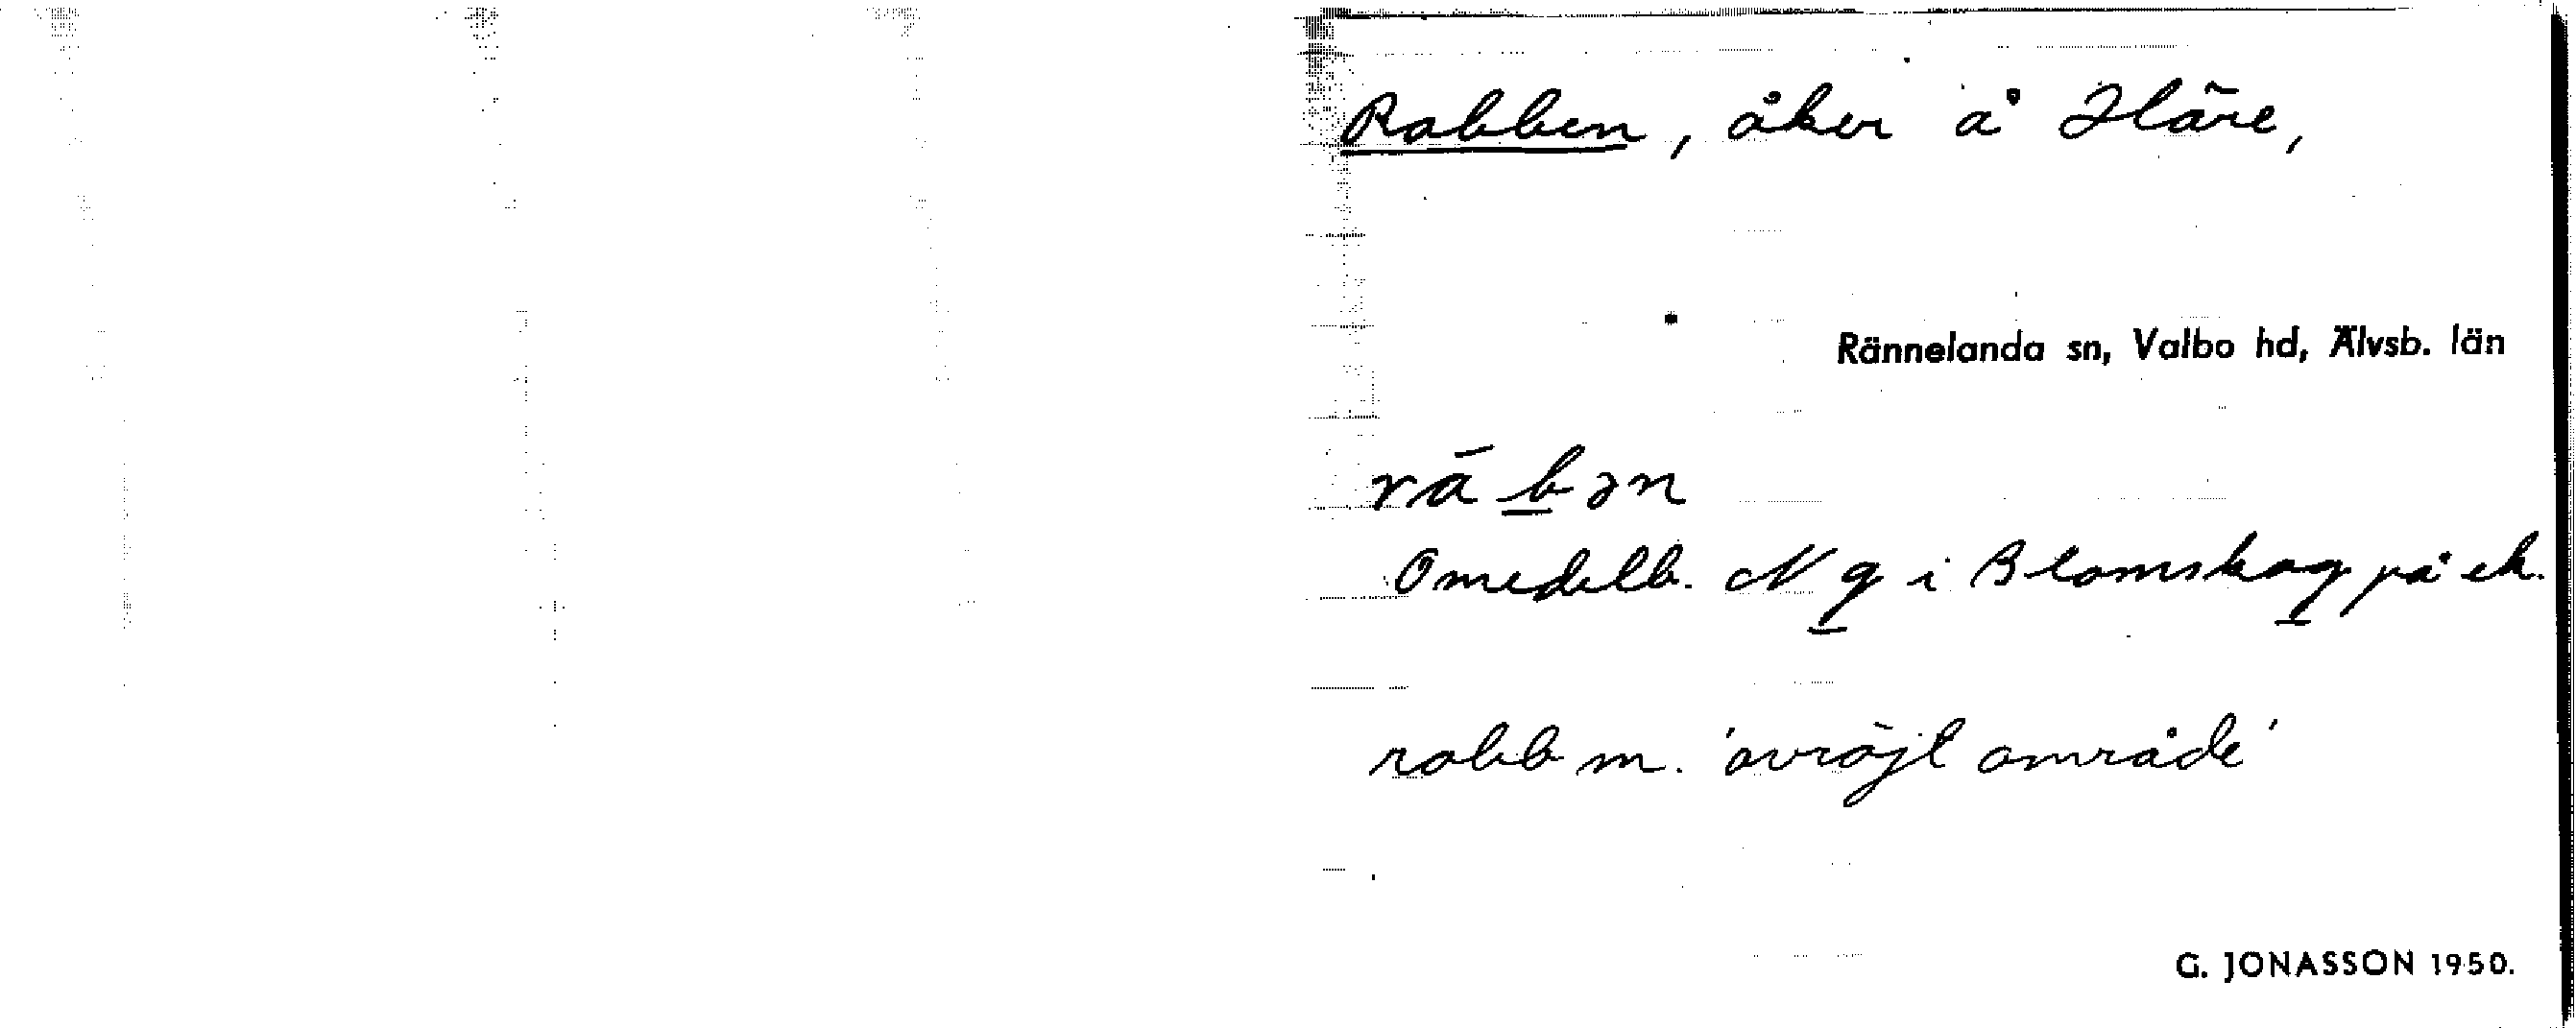 Rabben, åker å Häre,
Rännelanda sn, Valbo hd, Älvsb. län
rábən
Omedelb. N g i Blomskog på ek.
rabb m. 'avröjt område'
G. JONASSON 1950.